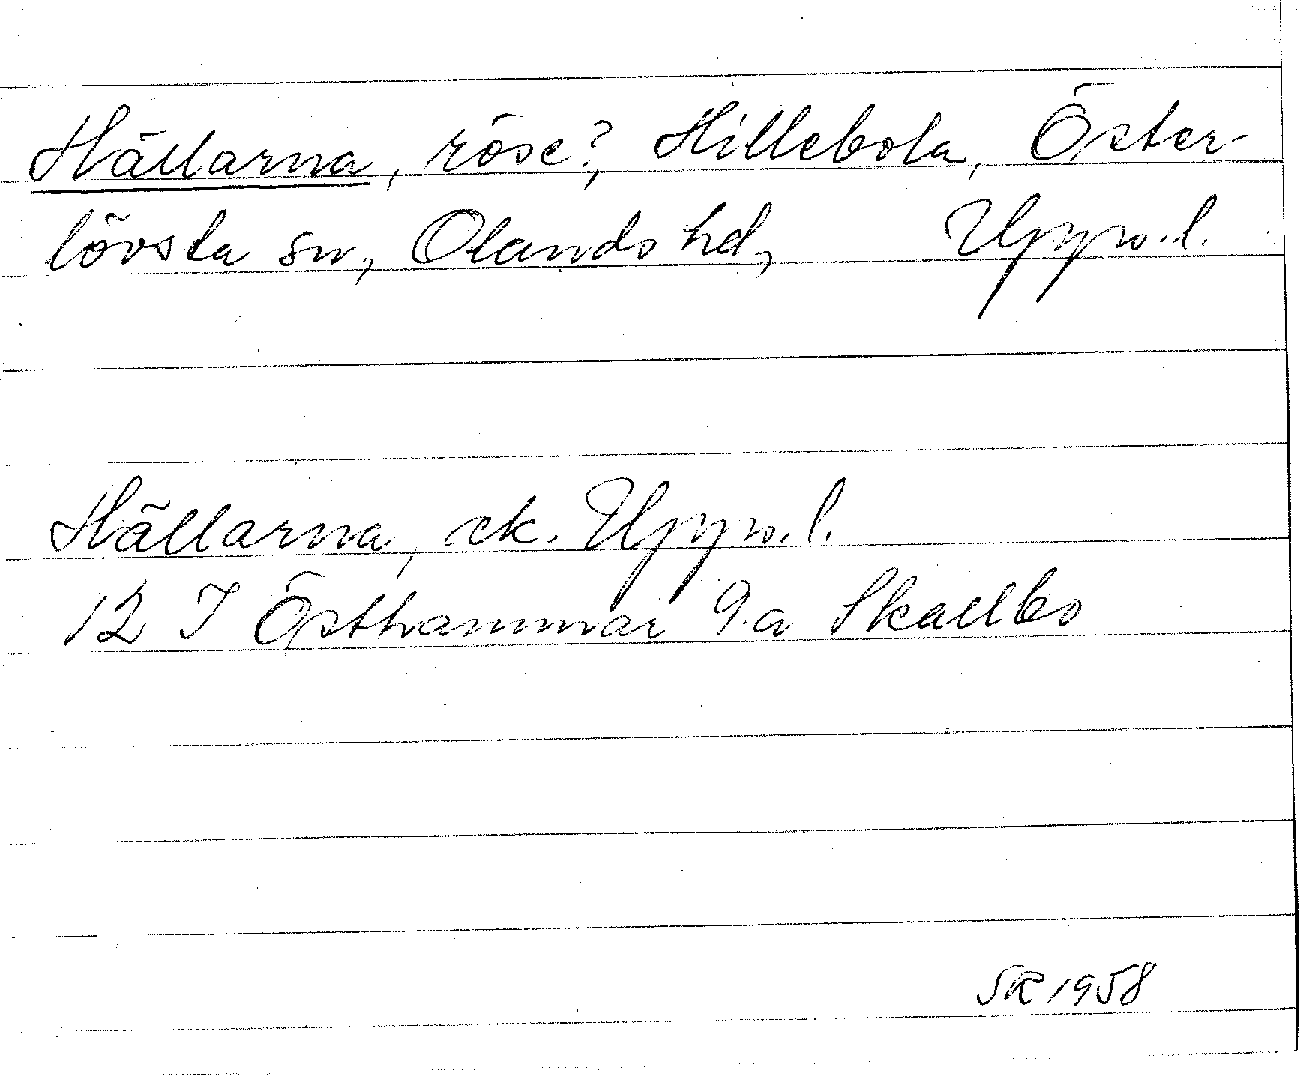 Hällarna, röse?, Hillebola, Öster-
lövsta sn, Olands hd, Upps.l.
Hällarna, ek. Upps.l.
12 I Östhammar 9 a Skaelbo
SR 1958